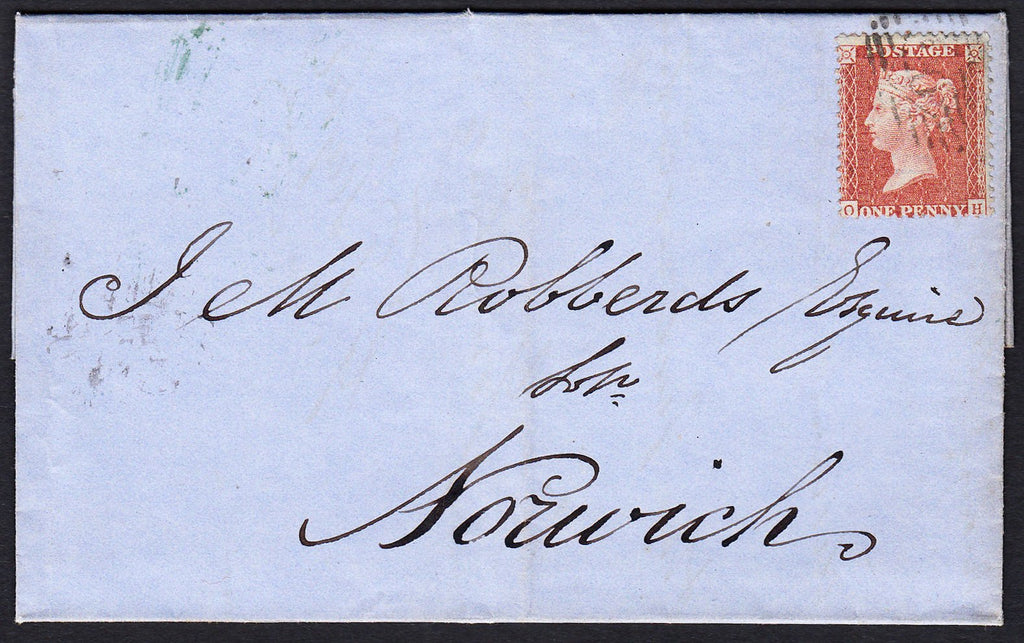 POSTAGE
O ONE PENNY H
J M Robberds Esquire
Norwich